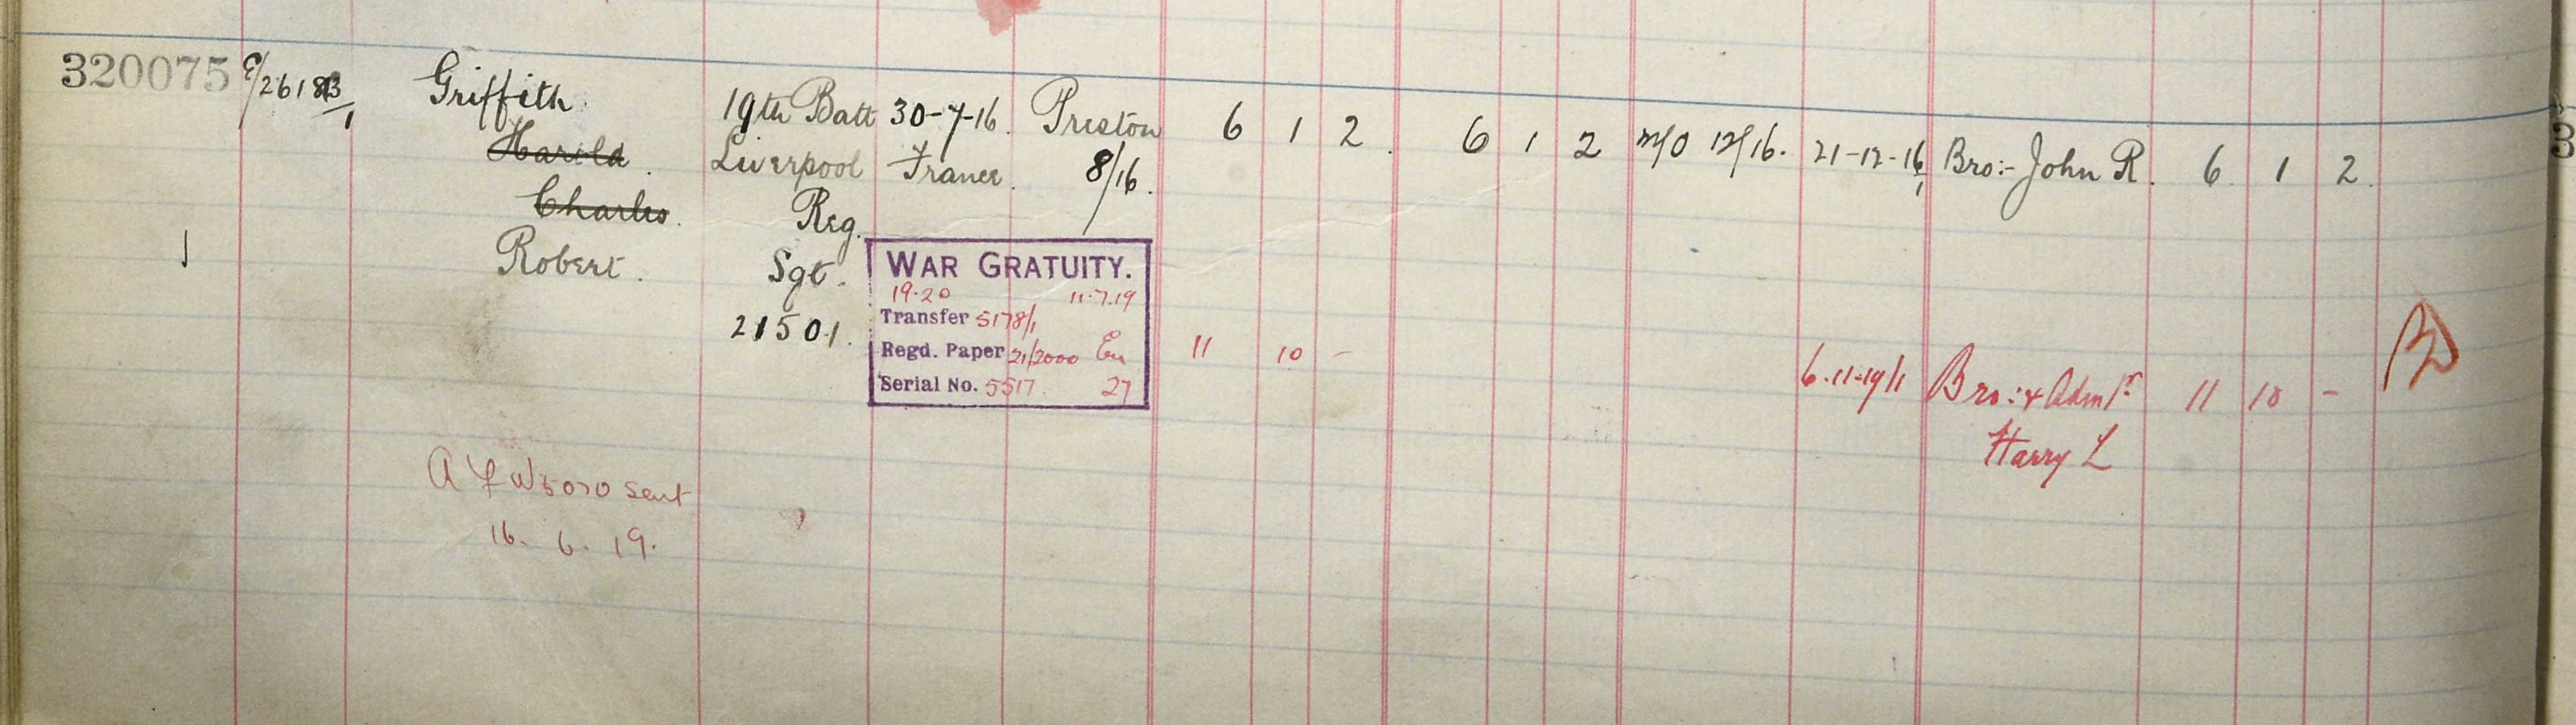 320075 E/26183/1 Griffith 19th Batt 30-7-16. Preston 6 1 2. 6 1 2 M/O 12/16. 21-12-16 Bro:- John R. 6 1 2.
Harold. Liverpool France. 8/16.
Charles. Reg.
Robert. Sgt.
21501.
WAR GRATUITY.
19-20 11-7-19
Transfer 5178/1
Regd. Paper 21/2000 11 10 -
Serial No. 5517. 27
6-11-19/1 Bro: & Admr. 11 10 -
Harry L
A F W5070 sent
16. 6. 19.
3